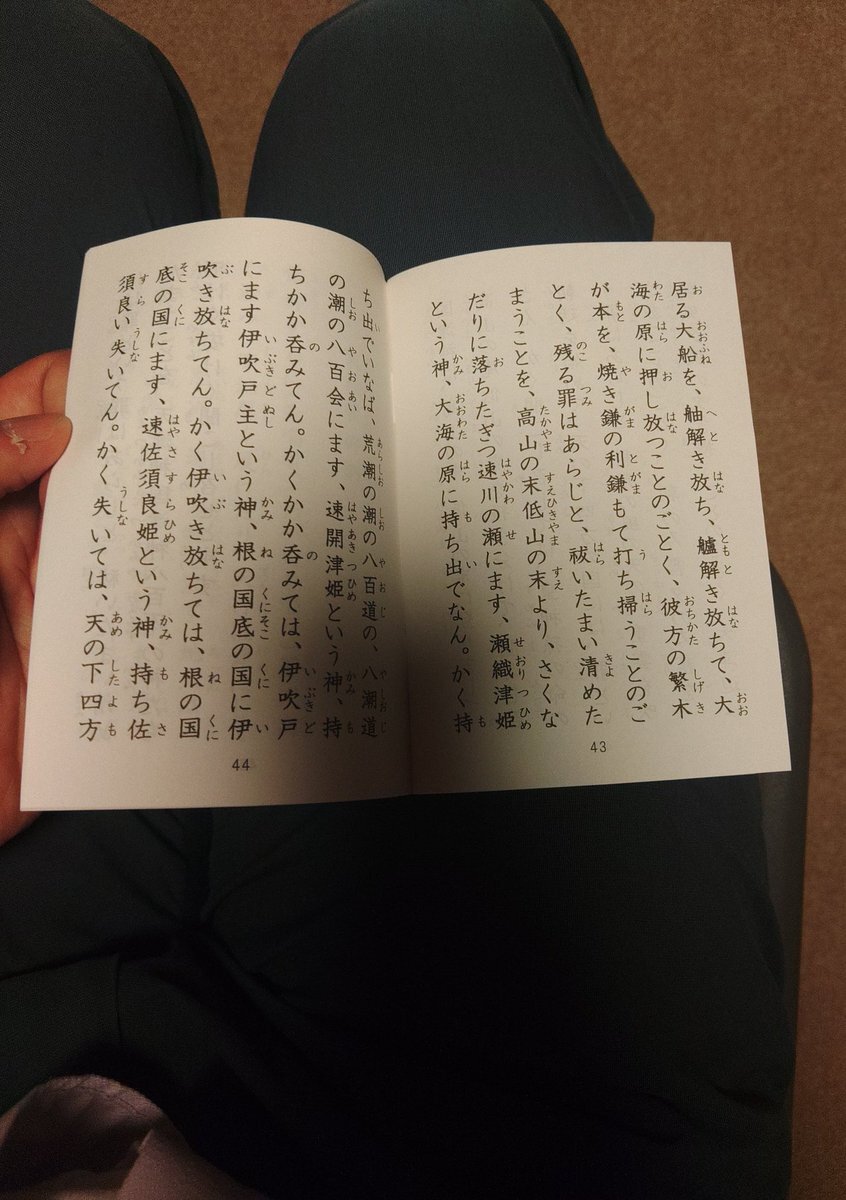 居る大船を、舳解き放ち、艫解き放ちて、大
海の原に押し放つことのごとく、彼方の繁木
が本を、焼き鎌の利鎌もて打ち掃うことのご
とく、残る罪はあらじと、祓いたまい清めた
まうことを、高山の末低山の末より、さくな
だりに落ちたぎつ速川の瀬にます、瀬織津姫
という神、大海の原に持ち出でなん。かく持
43
ち出でいなば、荒潮の潮の八百道の、八潮道
の潮の八百会にます、速開津姫という神、持
ちかか呑みてん。かくかか呑みては、伊吹戸
にます伊吹戸主という神、根の国底の国に伊
吹き放ちてん。かく伊吹き放ちては、根の国
底の国にます、速佐須良姫という神、持ち佐
須良い失いてん。かく失いては、天の下四方
44